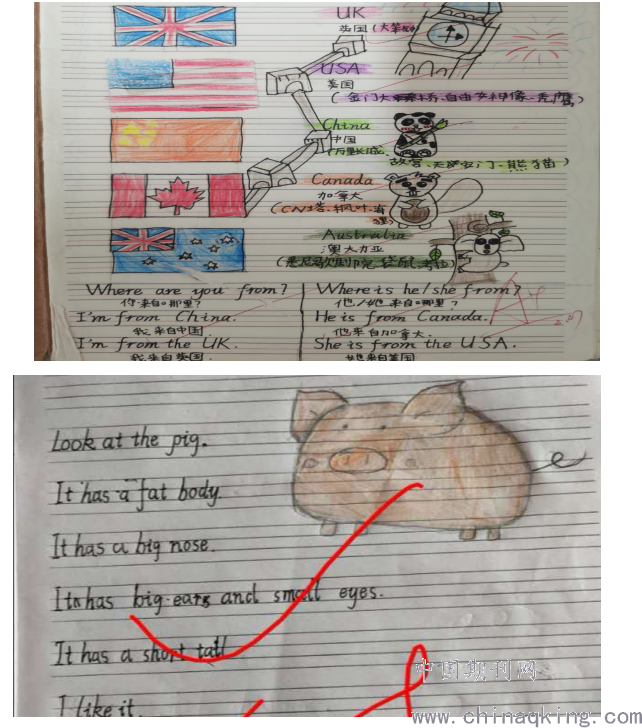 UK
英国(大笨钟)
USA
美国
(金门大桥、自由女神像、秃鹰)
China
中国
(万里长城、
故宫、天安门、熊猫)
Canada
加拿大
(CN塔、枫叶、海狸)
Australia
澳大利亚
(悉尼歌剧院、袋鼠、考拉)
Where are you from?
你来自哪里?
I'm from China.
我来自中国.
I'm from the UK.
我来自英国.
Where is he/she from?
他/她来自哪里?
He is from Canada.
他来自加拿大.
She is from the USA.
她来自美国
Look at the pig.
It has a fat body.
It has a big nose.
It has big ears and small eyes.
It has a short tail
I like it.
中国期刊网
www.chinaqking.com